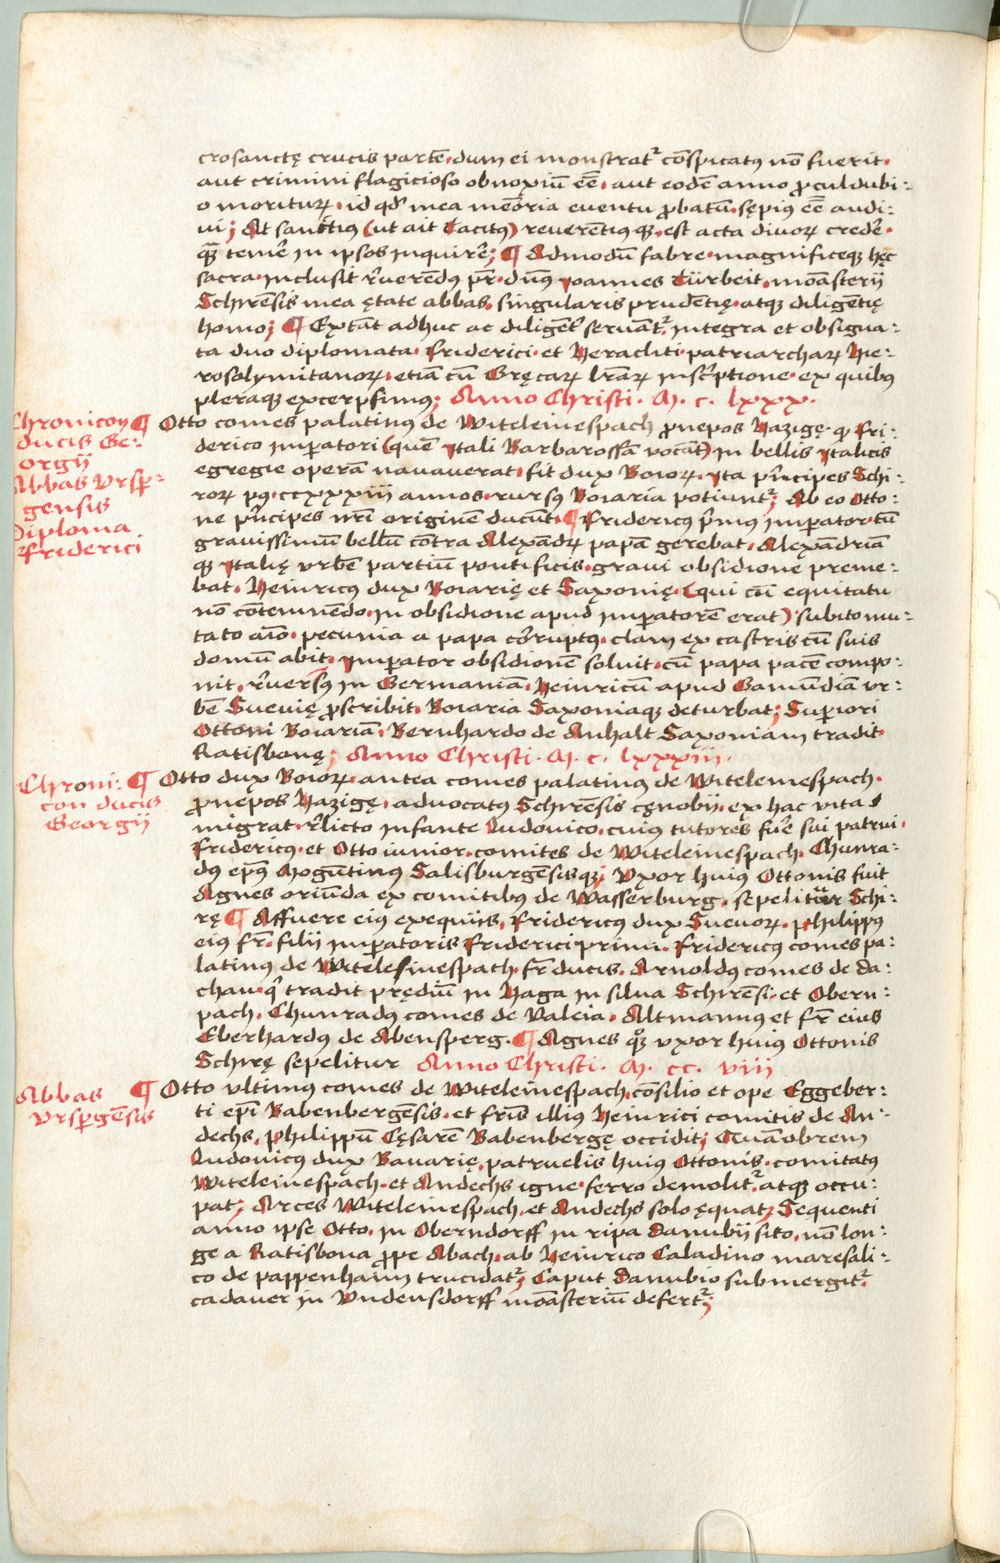 crosanctę crucis partē. dum ei monstrat᷑ cōspicatꝰ nō fuerit.
aut crimini flagicioso obnoxiū eē̄. aut eodē anno ꝓculdubi-
o moriturꝝ. id qd̕ mea memoria euentu ꝓbatū. sępiꝰ eē̄ audi-
vi; At sanctius (ut ait Tacitus) reverētius qꝫ. est acta divoꝝ creder̄.
quā̄ temer̄ in ipsos inquirer̄; ¶ Admodū fabre. magnificeqꝫ hęc
sacra. inclusit r̄verendꝰ pr̄. dn̄s ioannes Türbeit. monāsterii
Schirēsis mea ętate abbas. singularis prudentię. atqꝫ diligētię
homo; ¶ Extāt adhuc ac diligent᷑ servant᷑. integra et obsigna-
ta duo diplomata. friderici. et Heracliti. patriarcharꝝ Hie-
rosolymitanorꝝ. etiā cū Gręcarꝝ lrārꝝ inscʳptione. ex quibꝰ
pleraqꝫ excerpsimꝰ; Anno Christi. M. c. lxxx.
Chronicon
ducis Ge-
orgii
Abbas Vrsper-
gensis
Diploma
friderici
¶ Otto comes palatinꝰ de Witeleinespach ꝓnepos Hazigę. qͥ fri-
derico imꝑatori (quē Itali Barbarossā vocāt) in bellis Italicis
egregie operā navaverat. fit dux Boioꝝ. Ita pʳncipes Schi-
roꝝ pꝰ. ccxxxiii annos. rursꝰ Boiaria potiunt᷑; Ab eo Otto-
ne pʳncipes nr̄i originem ducūt. ¶ fridericꝰ pʳmꝰ imꝑator. cū
gravissimū bellū cōtra Alexādrꝝ papā gerebat. Alexādriā
qꝫ Italię vrbē partiū pontificis. gravi obsidione preme-
bat. Heinricus dux Boiarię et Saxonię. (qui cū equitatu
nō cōtemnēdo. in obsidione apud imꝑatorē erat) subito mu-
tato aīo. pecunia a papa corruptꝰ. clam ex castris cū suis
domū abit. Imꝑator obsidionē solvit. cū papa pacē compo-
nit. r̄versꝰ in Germaniā. Heinricū apud Gamūdiā vr-
bē Suevię ꝓscribit. Boiaria Saxoniaqꝫ deturbat; Superiori
Ottoni Boiariā. Bernhardo de Anhalt Saxoniam tradit
Ratisbonę; Anno Christi. M. c. lxxxiii.
Chroni-
con ducis
Georgii
¶ Otto dux Boioꝝ. antea comes palatinꝰ de Witeleinespach.
ꝓnepos Hazigę. advocatꝰ Schirēsis cęnobii. ex hac vita
migrat. r̄licto infante Ludovico. cuiꝰ tutores fuer̄ sui patrui.
fridericꝰ. et Otto iunior. comites de Witeleinespach. Chunra-
dꝰ epꝰ Mogūtinꝰ Salisburgēsisqꝫ; Vxor huiꝰ Ottonis fuit
Agnes oriūda ex comitibꝰ de Wasserburg. sepelitur Schi-
rę ¶ Affuere eiꝰ exequiis. fridericꝰ dux Suevoꝝ. philippꝰ
eiꝰ fr̄. filii imꝑatoris friderici primi. fridericꝰ comes pa-
latinꝰ de Witeleinespach. fr̄ ducis. Arnoldꝰ comes de da-
chau. qͥ tradit prędiū in Haga in silva Schirēsi. et Obern-
pach. Chunradꝰ comes de Valeia. Altmannꝰ et fr̄ eiꝰ
Eberhardꝰ de Abensperg. ¶ Agnes quoqꝫ vxor huiꝰ Ottonis
Schirę sepelitur Anno Christi. M. cc. viii
Abbas
Vrspergēsis
¶ Otto vltimꝰ comes de Witeleinespach. cōsilio et ope Eggeber-
ti epī Babenbergēsis. et frīs illiꝰ Heinrici comitis de An-
dechs. philippū Cęsarē Babenbergę occidit; Quāobrem
Ludovicꝰ dux Bavarię. patruelis huiꝰ Ottonis. comitatꝰ
Witeleinespach. et Andechs igne. ferro demolit᷑. atqꝫ occu-
pat; Arces Witeleinespach. et Andechs solo ęquat; Sequenti
anno ipse Otto. in Oberndorff in ripa danubii sito. nō lon-
ge a Ratisbona ꝓpe Abach. ab Heinrico Caladino maresali-
co de pappenhaim trucidat᷑; Caput danubio submergit᷑.
cadaver in Vndensdorff monāsteriū defert᷑;